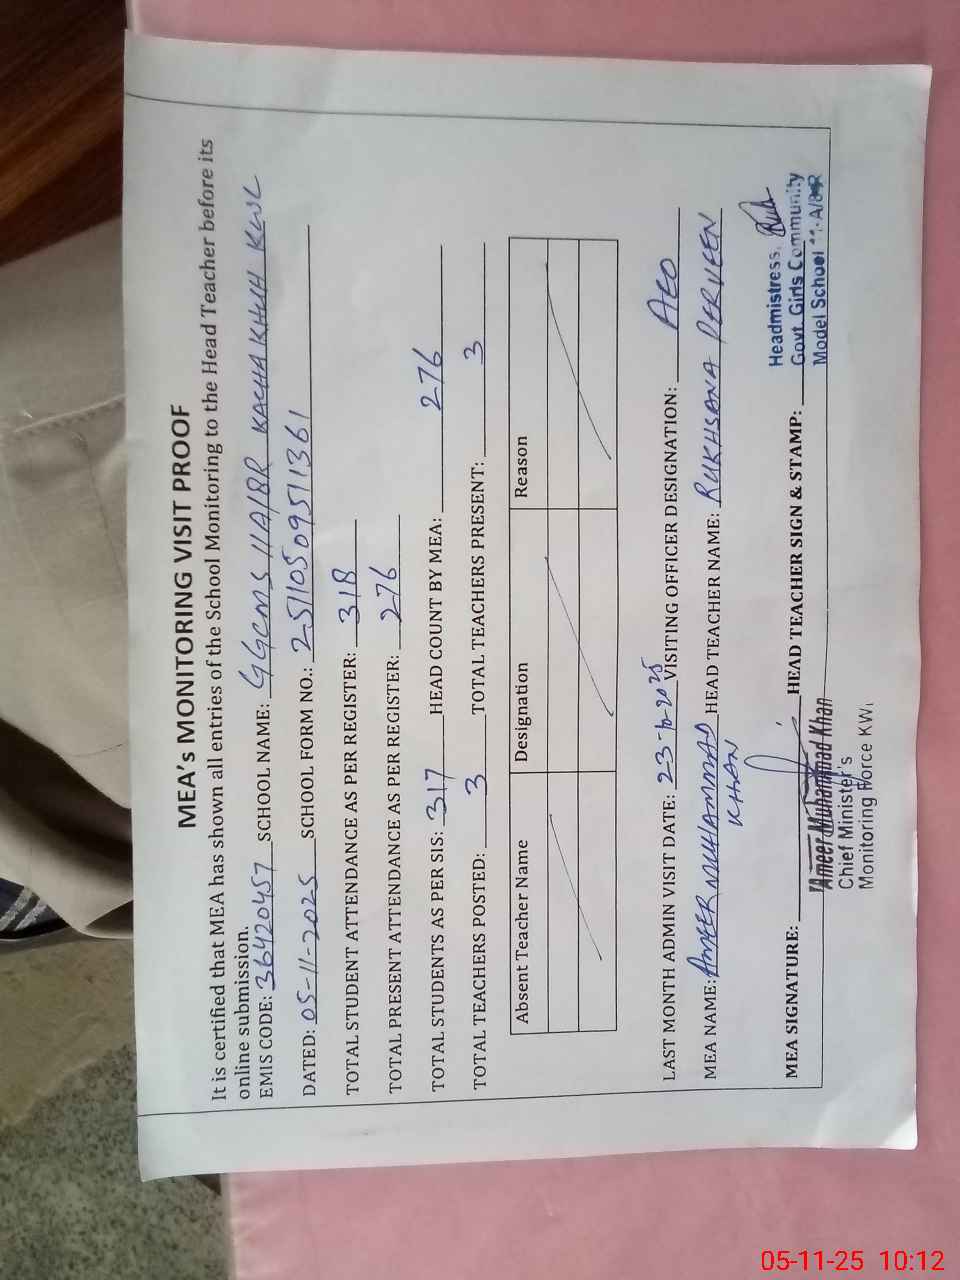 MEA's MONITORING VISIT PROOF
It is certified that MEA has shown all entries of the School Monitoring to the Head Teacher before its
online submission.
EMIS CODE: 36420457 SCHOOL NAME: GGCMS 11A/8R KACHA KHUH KWL
DATED: 05-11-2025 SCHOOL FORM NO.: 2511050951361
TOTAL STUDENT ATTENDANCE AS PER REGISTER: 318
TOTAL PRESENT ATTENDANCE AS PER REGISTER: 276
TOTAL STUDENTS AS PER SIS: 317 HEAD COUNT BY MEA: 276
TOTAL TEACHERS POSTED: 3 TOTAL TEACHERS PRESENT: 3
Absent Teacher Name Designation Reason
LAST MONTH ADMIN VISIT DATE: 23-10-2025 VISITING OFFICER DESIGNATION: AEO
MEA NAME: AMEER MUHAMMAD KHAN HEAD TEACHER NAME: RUKHSANA PERVEEN
MEA SIGNATURE: HEAD TEACHER SIGN & STAMP:
Headmistress,
Govt. Girls Community
Model School
Ameer Muhammad Khan
Chief Minister's
Monitoring Force KW
05-11-25 10:12